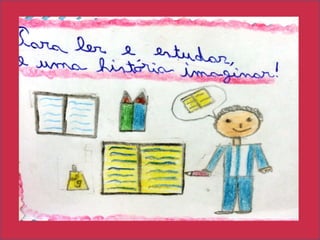 Para ler e estudar,
e uma história imaginar!